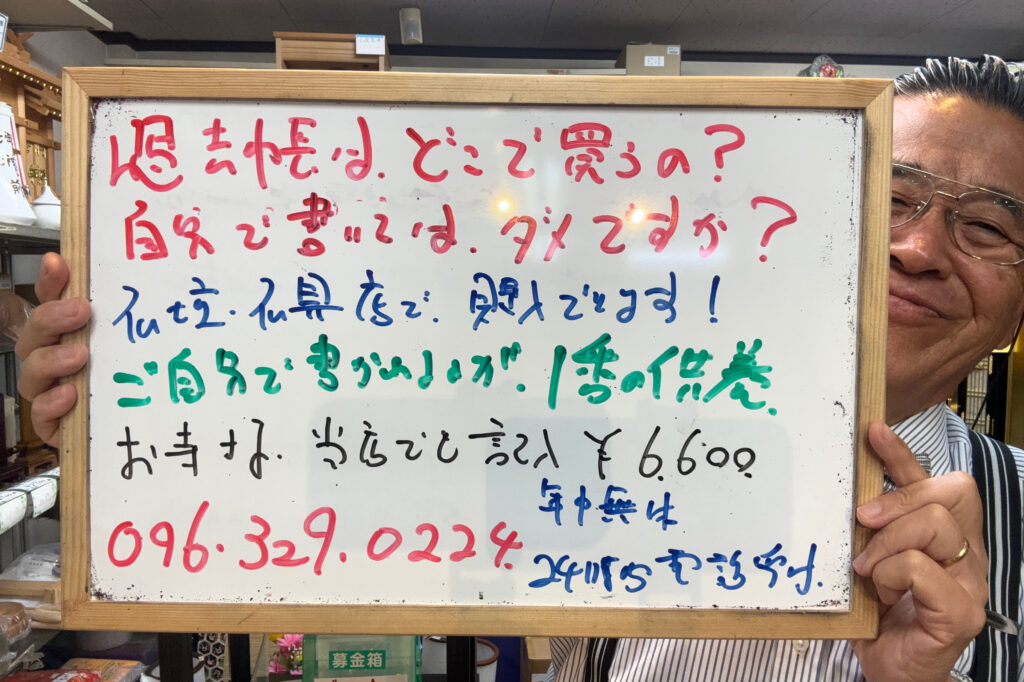 過去帳は、どこで買うの?
自分で書いては、ダメですか?
仏壇・仏具店で、購入できます!
ご自分で書かれるよが、1番の供養、
お寺さん、当店でも記入 ¥6.600
年中無休
096.329.0224
24時間電話受付、
募金箱